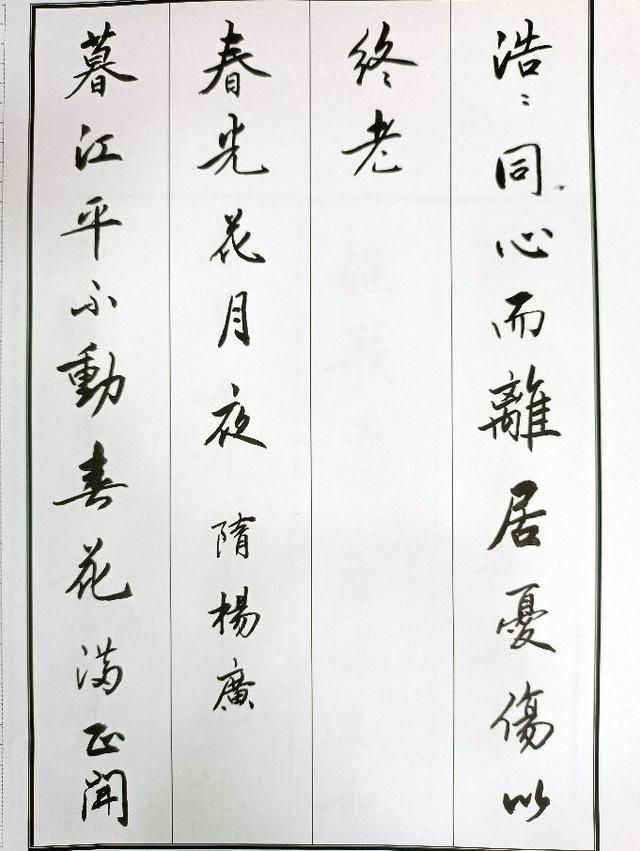 浩〻同心而離居憂傷以
終老
春光花月夜 隋楊廣
暮江平不動春花滿正開